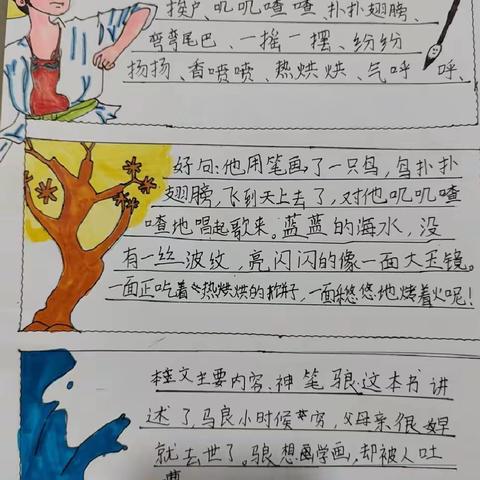 挨户、叽叽喳喳、扑扑翅膀、
弯弯尾巴、一摇一摆、纷纷
扬扬、香喷喷、热烘烘、气呼呼、
好句:他用笔画了一只鸟,鸟扑扑
翅膀,飞到天上去了,对他叽叽喳
喳地唱起歌来。蓝蓝的海水,没
有一丝波纹,亮闪闪的像一面大玉镜。
一面正吃着热烘烘的饼子,一面悠悠地烤着火呢!
本文主要内容、神笔马良.这本书讲
述了,马良小时候穷,父母亲很早
就去世了。马良想画学画,却被人吐